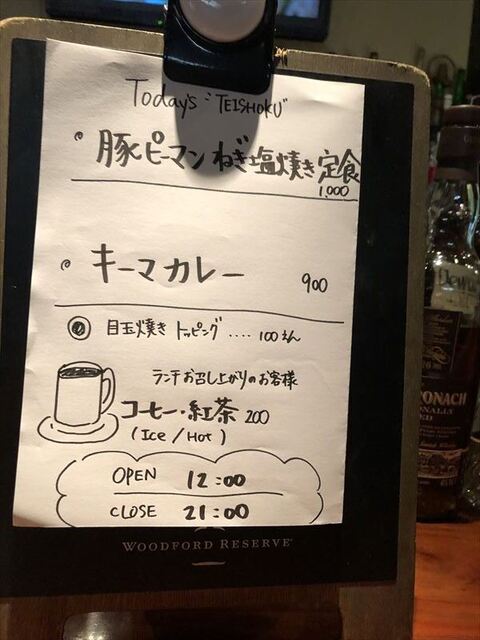 Today's "TEISHOKU"
豚ピーマン ねぎ塩焼き定食
1,000
キーマカレー 900
目玉焼き トッピング .... 100えん
ランチお召し上がりのお客様
コーヒー・紅茶 200
(Ice / Hot)
OPEN 12:00
CLOSE 21:00
WOODFORD RESERVE